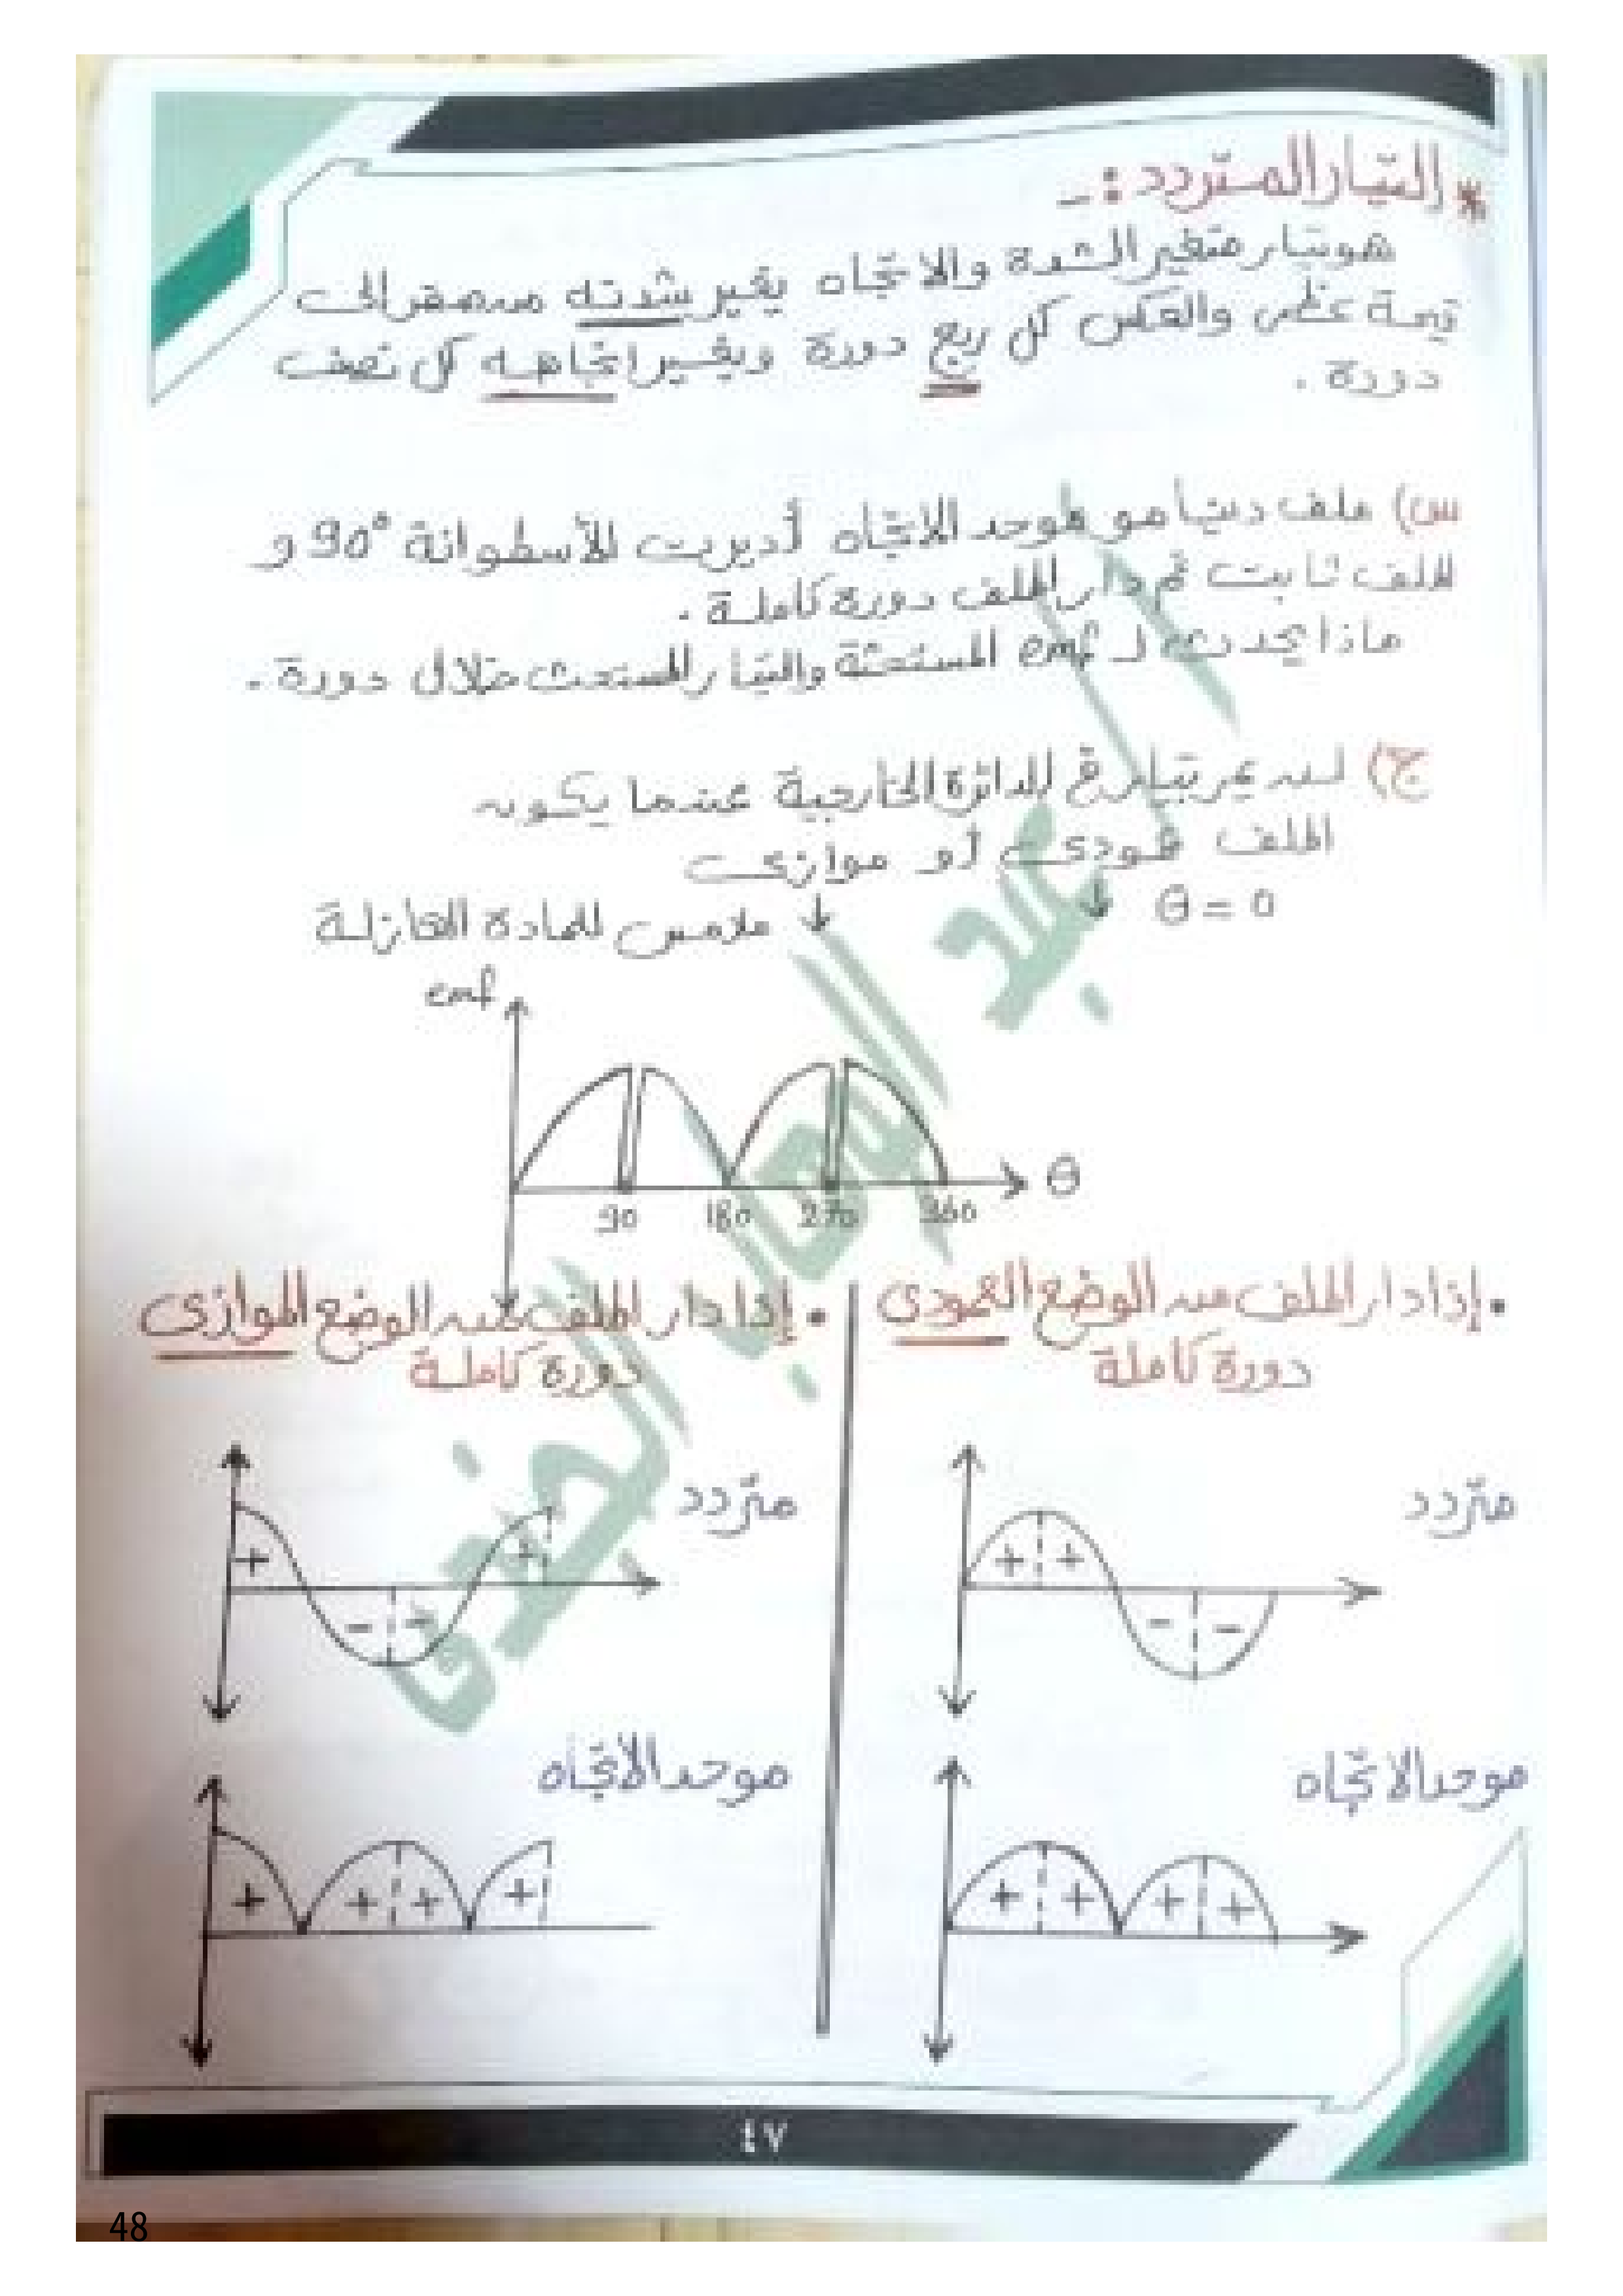 * التيار المتردد :-
هو تيار متغير الشدة والاتجاه يغير شدته من صفر إلى
قيمة عظمى والعكس كل ربع دورة ويغير اتجاهه كل نصف
دورة .
س) ملف دينامو موحد الاتجاه أديرت الأسطوانة 90° و
الملف ثابت ثم دار الملف دورة كاملة .
ماذا يحدث لـ emf المستحثة والتيار المستحث خلال دورة .
ج) لن يمر تيار في الدائرة الخارجية عندما يكون
الملف عمودى أو موازى
θ = 0
ملامس للمادة العازلة
emf
θ
90 180 270 360
• إذا دار الملف من الوضع العمودى
دورة كاملة
متردد
+ +
- -
موحد الاتجاه
+ + + +
• إذا دار الملف من الوضع الموازى
دورة كاملة
متردد
+
- -
+
موحد الاتجاه
+ + + +
٤٧
48